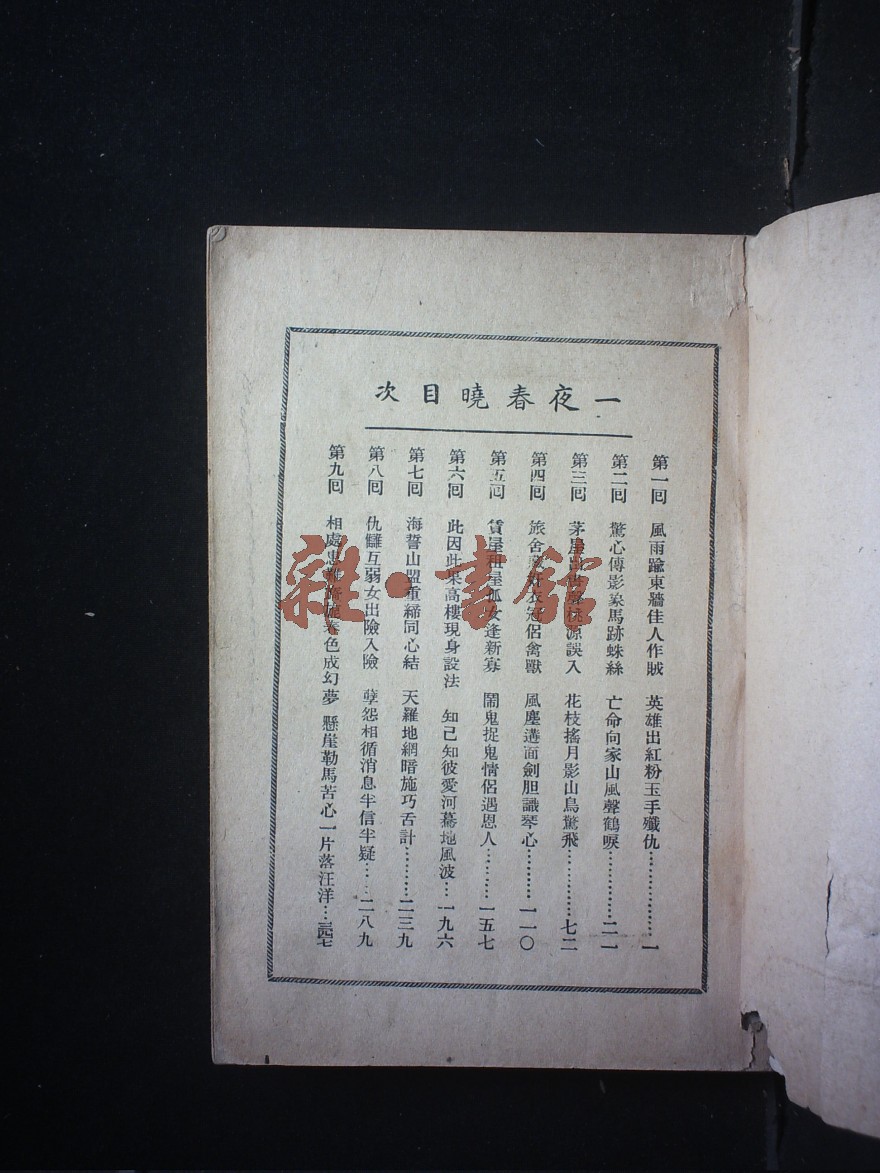 一夜春曉目次
第一回 風雨踰東牆佳人作賊 英雄出紅粉玉手殲仇………………一
第二回 驚心傳影象馬跡蛛絲 亡命向家山風聲鶴唳…………二一
第三回 茅屋 書聲桃源誤入 花枝搖月影山鳥驚飛…………七二
第四回 旅舍 衣冠侶禽獸 風塵遘面劍胆識琴心………一一〇
第五回 賃屋租屋孤女逢新寡 鬧鬼捉鬼情侶遇恩人………一五七
第六回 此因此果高樓現身設法 知已知彼愛河驀地風波…一九六
第七回 海誓山盟重締同心結 天羅地網暗施巧舌計………二三九
第八回 仇讎互弱女出險入險 孽怨相循消息半信半疑……二八九
第九回 相處患難 春色成幻夢 懸崖勒馬苦心一片落汪洋…三四七
雜·書館